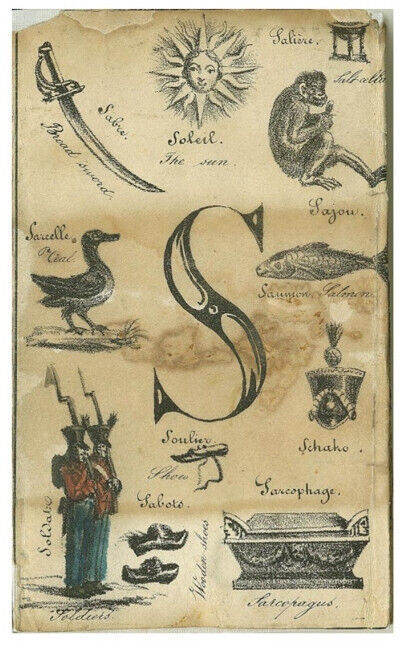 Salière.
Salt cellar
Sabre.
Broad sword.
Soleil.
The sun.
Sajou.
Sarcelle.
Teal.
Saumon. Salmon.
S
Soulier
Shoes
Schako.
Soldats
Soldiers.
Sabots.
Wooden shoes
Sarcophage.
Sarcopagus.